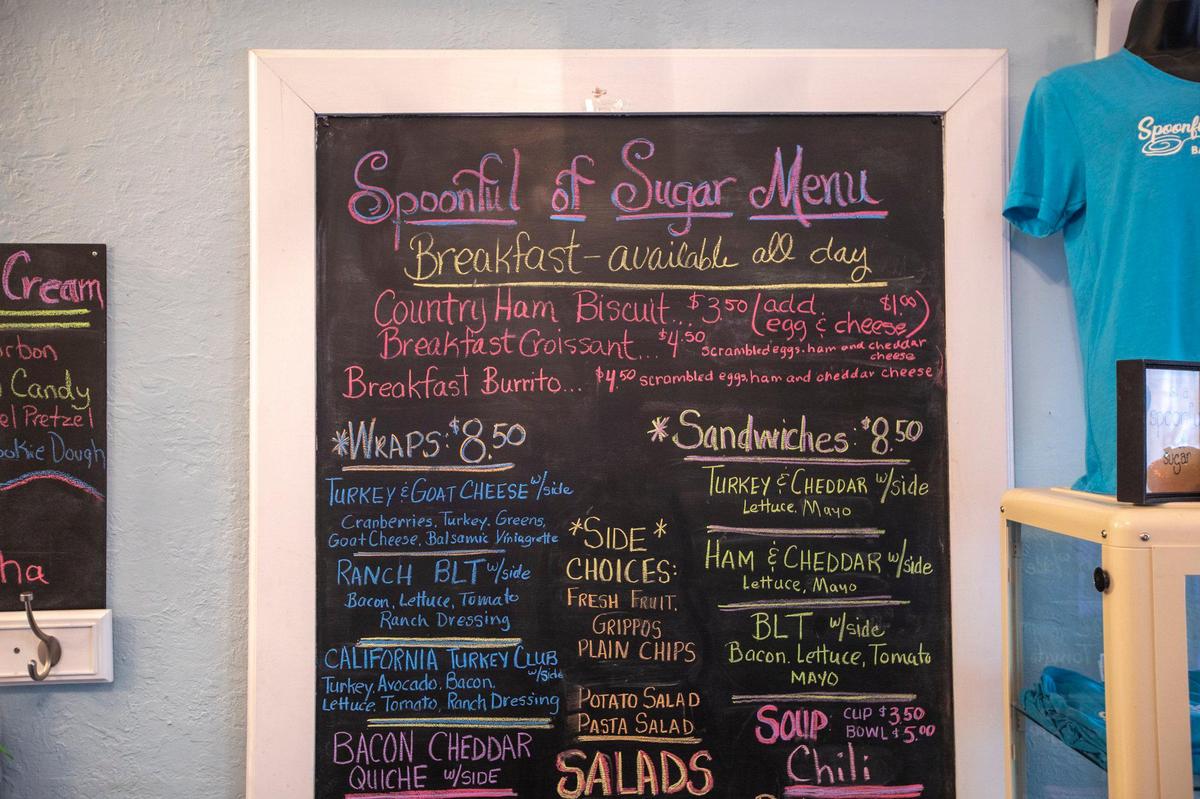 Cream
Candy
Pretzel
Dough
Spoonful of Sugar Menu
Breakfast - available all day
Country Ham Biscuit... $3.50 (add egg & cheese $1.00)
Breakfast Croissant... $4.50 scrambled eggs, ham and cheddar cheese
Breakfast Burrito... $4.50 scrambled eggs, ham and cheddar cheese
*WRAPS: $8.50
TURKEY & GOAT CHEESE w/side
Cranberries, Turkey, Greens,
Goat Cheese, Balsamic Viniagrette
RANCH BLT w/side
Bacon, Lettuce, Tomato
Ranch Dressing
CALIFORNIA TURKEY CLUB w/side
Turkey, Avocado, Bacon,
Lettuce, Tomato, Ranch Dressing
BACON CHEDDAR
QUICHE w/SIDE
*SIDE*
CHOICES:
FRESH FRUIT,
GRIPPOS
PLAIN CHIPS
POTATO SALAD
PASTA SALAD
SALADS
*Sandwiches: $8.50
TURKEY & CHEDDAR w/side
Lettuce, Mayo
HAM & CHEDDAR w/side
Lettuce, Mayo
BLT w/side
Bacon, Lettuce, Tomato
MAYO
SOUP CUP $3.50
BOWL $5.00
Chili
sugar